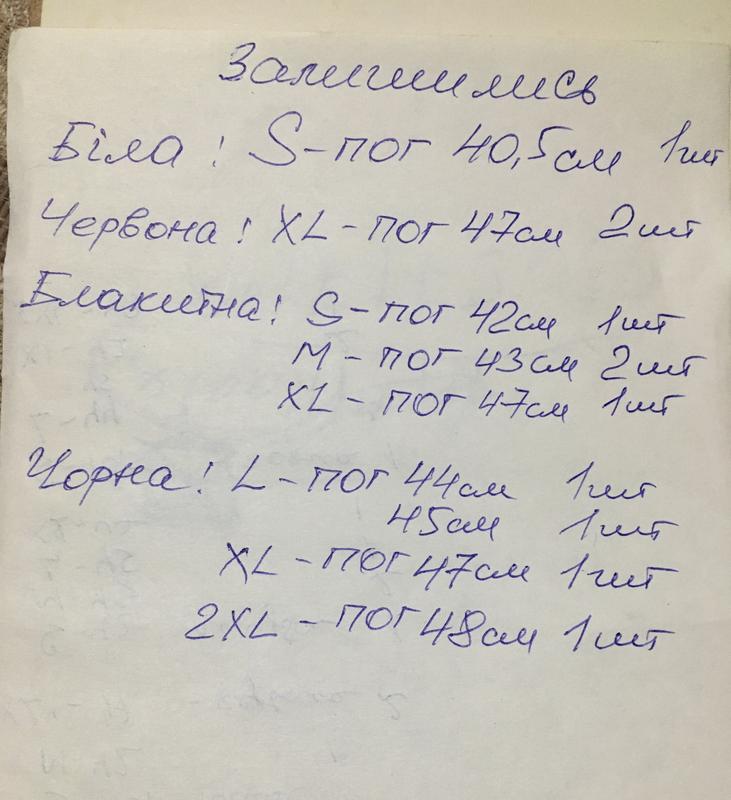 Залишились
Біла! S-пог 40,5см 1шт
Червона! XL-пог 47см 2шт
Блакитна! S-пог 42см 1шт
M-пог 43см 2шт
XL-пог 47см 1шт
Чорна! L-пог 44см 1шт
45см 1шт
XL-пог 47см 1шт
2XL-пог 48см 1шт